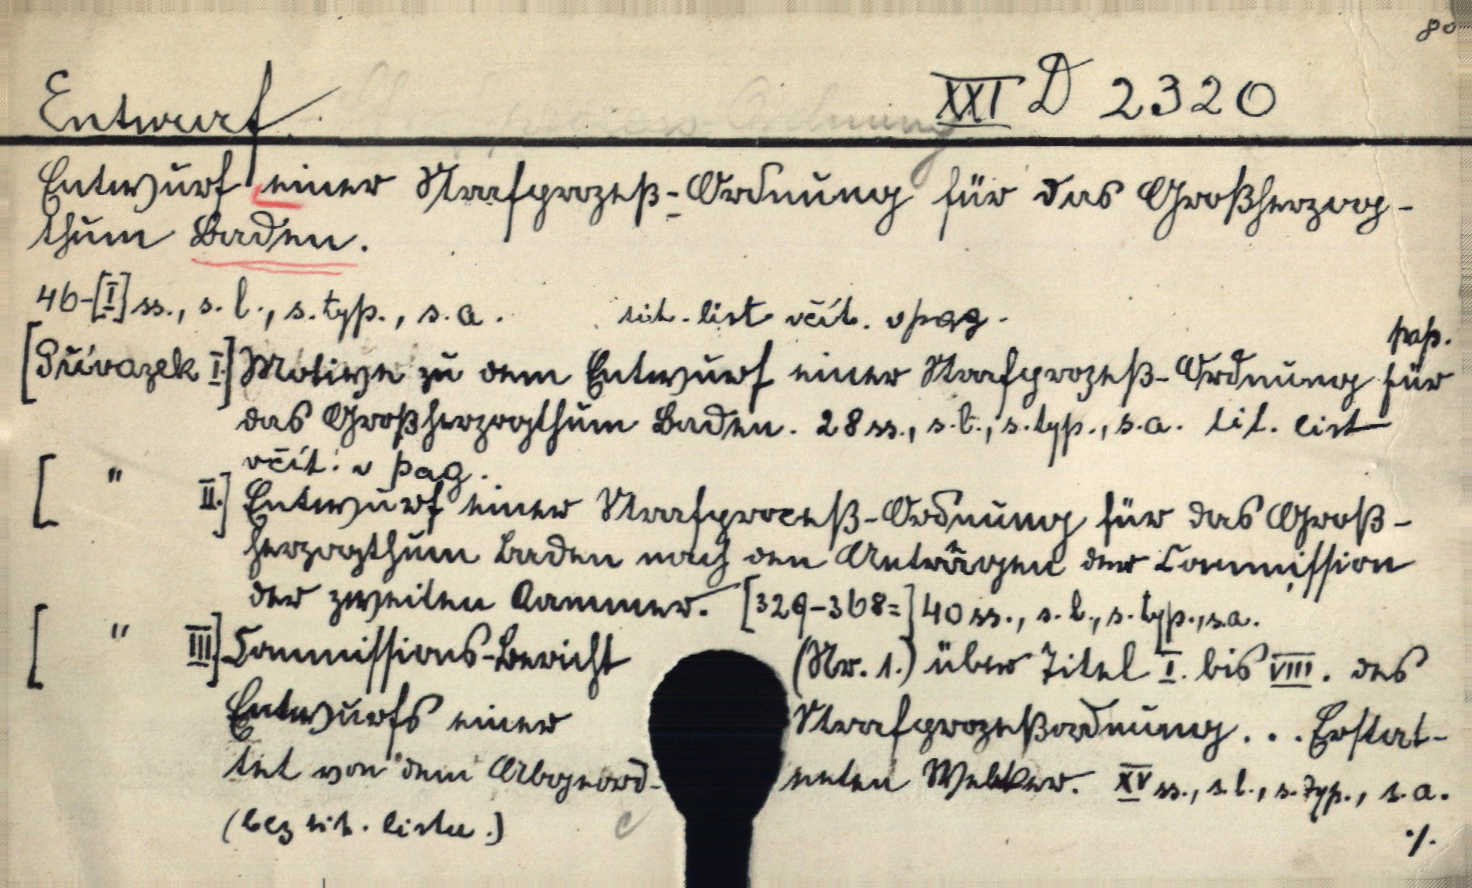 80
Entwurf. XXI D 2320
Entwurf einer Strafprozeß-Ordnung für das Großherzog-
thum Baden.
46-[I] ss., s. l., s. typ., s. a. tit. list včít. v pag.
pap.
[Přívazek I.] Motive zu dem Entwurf einer Strafprozeß-Ordnung für
das Großherzogthum Baden. 28 ss., s. l., s. typ., s. a. tit. list
včít. v pag.
[ " II.] Entwurf einer Strafproceß-Ordnung für das Groß-
herzogthum Baden nach den Anträgen der Commission
der zweiten Kammer. [329-368=] 40 ss., s. l., s. typ., s. a.
[ " III.] Commissions-Bericht (Nr. 1.) über Titel I. bis VIII. des
Entwurfs einer Strafprozeßordnung... Erstat-
tet von dem Abgeord- neten Welker. XV ss., s. l., s. typ., s. a.
(bez tit. listu.)
./.